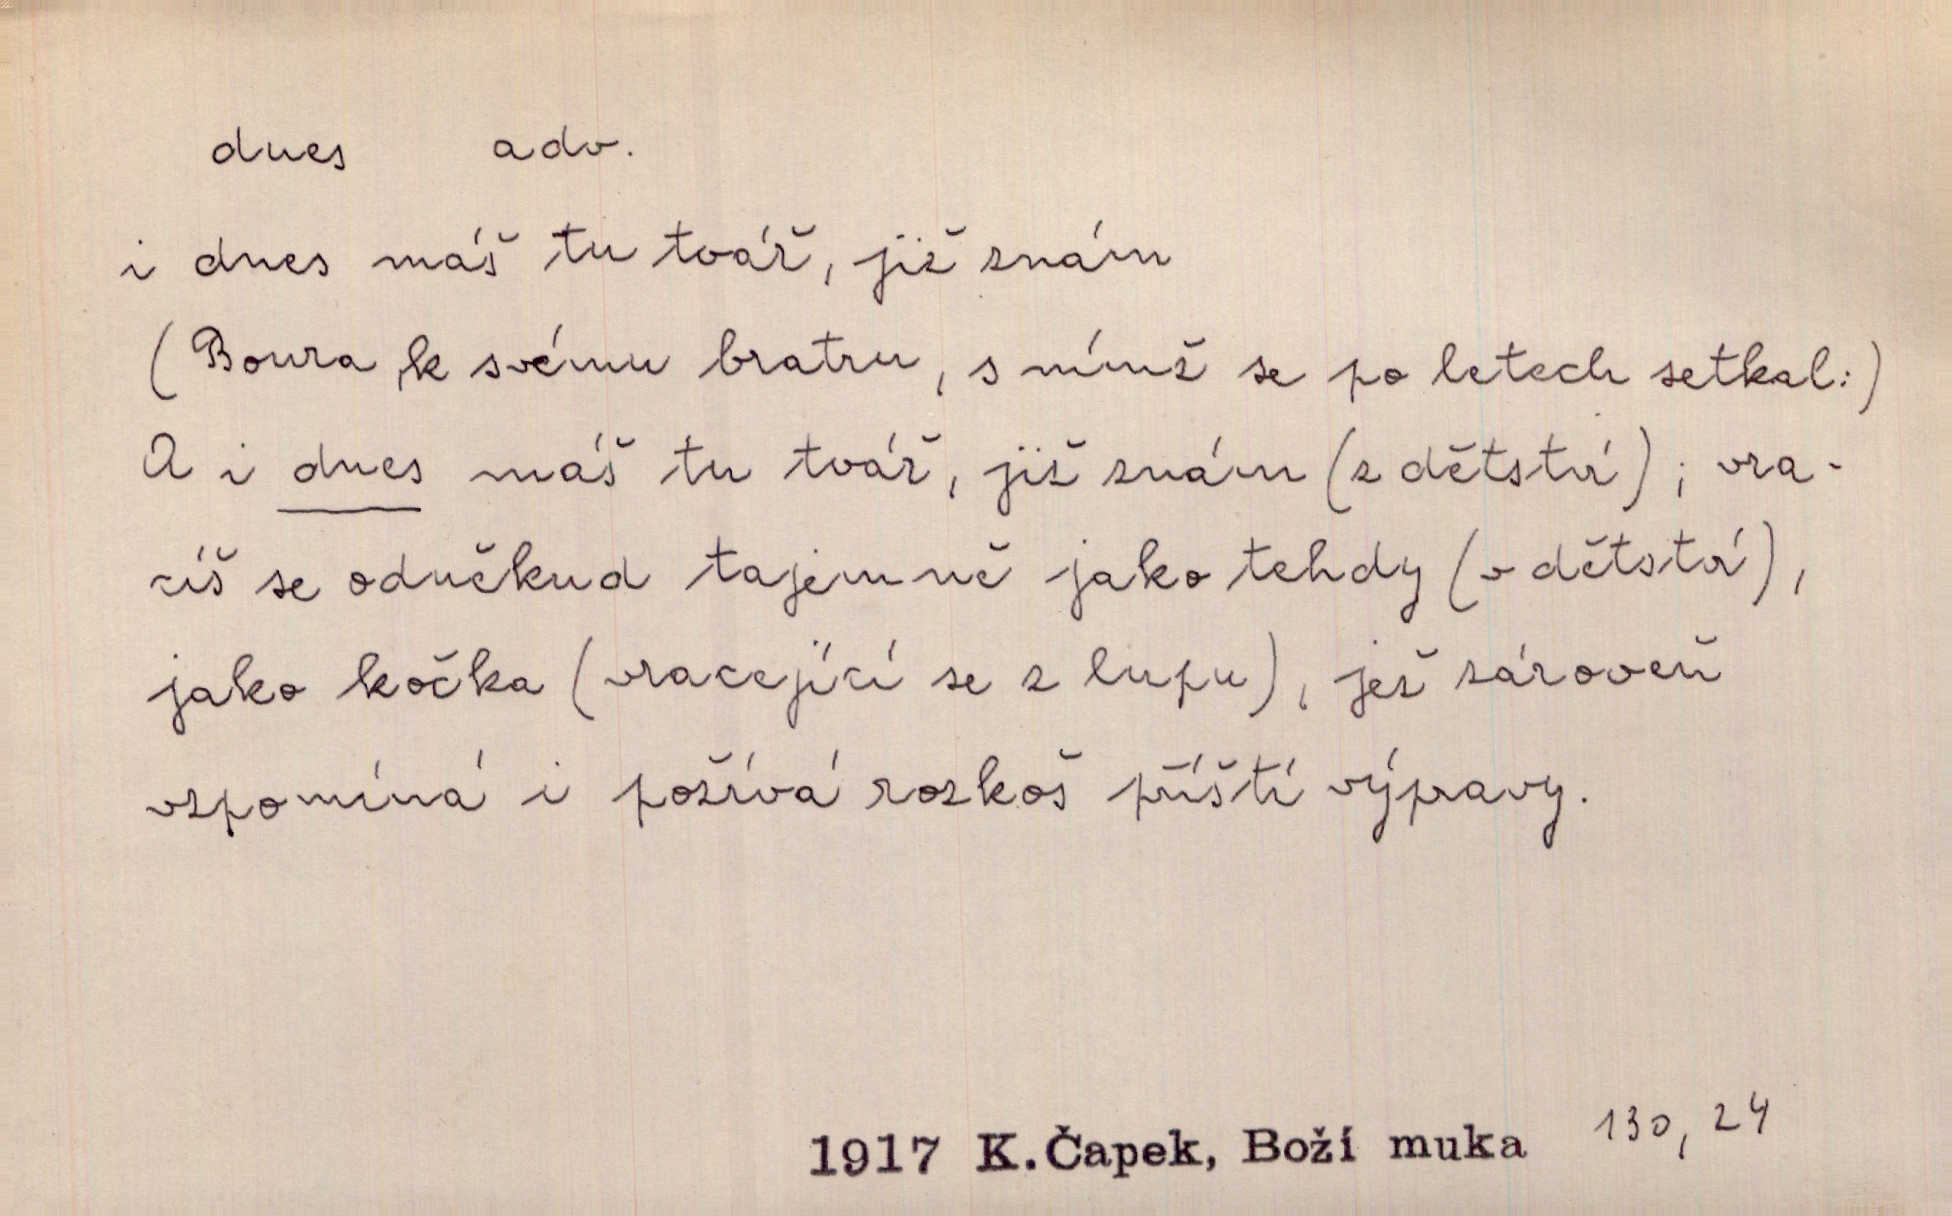 dnes adv.
i dnes máš tu tvář, již znám
(Boura k svému bratru, s nímž se po letech setkal:)
A i dnes máš tu tvář, již znám (z dětství); vra-
cíš se odněkud tajemně jako tehdy (v dětství),
jako kočka (vracející se z lupu), jež zároveň
vzpomíná i požívá rozkoš příští výpravy.
1917 K.Čapek, Boží muka 130, 24